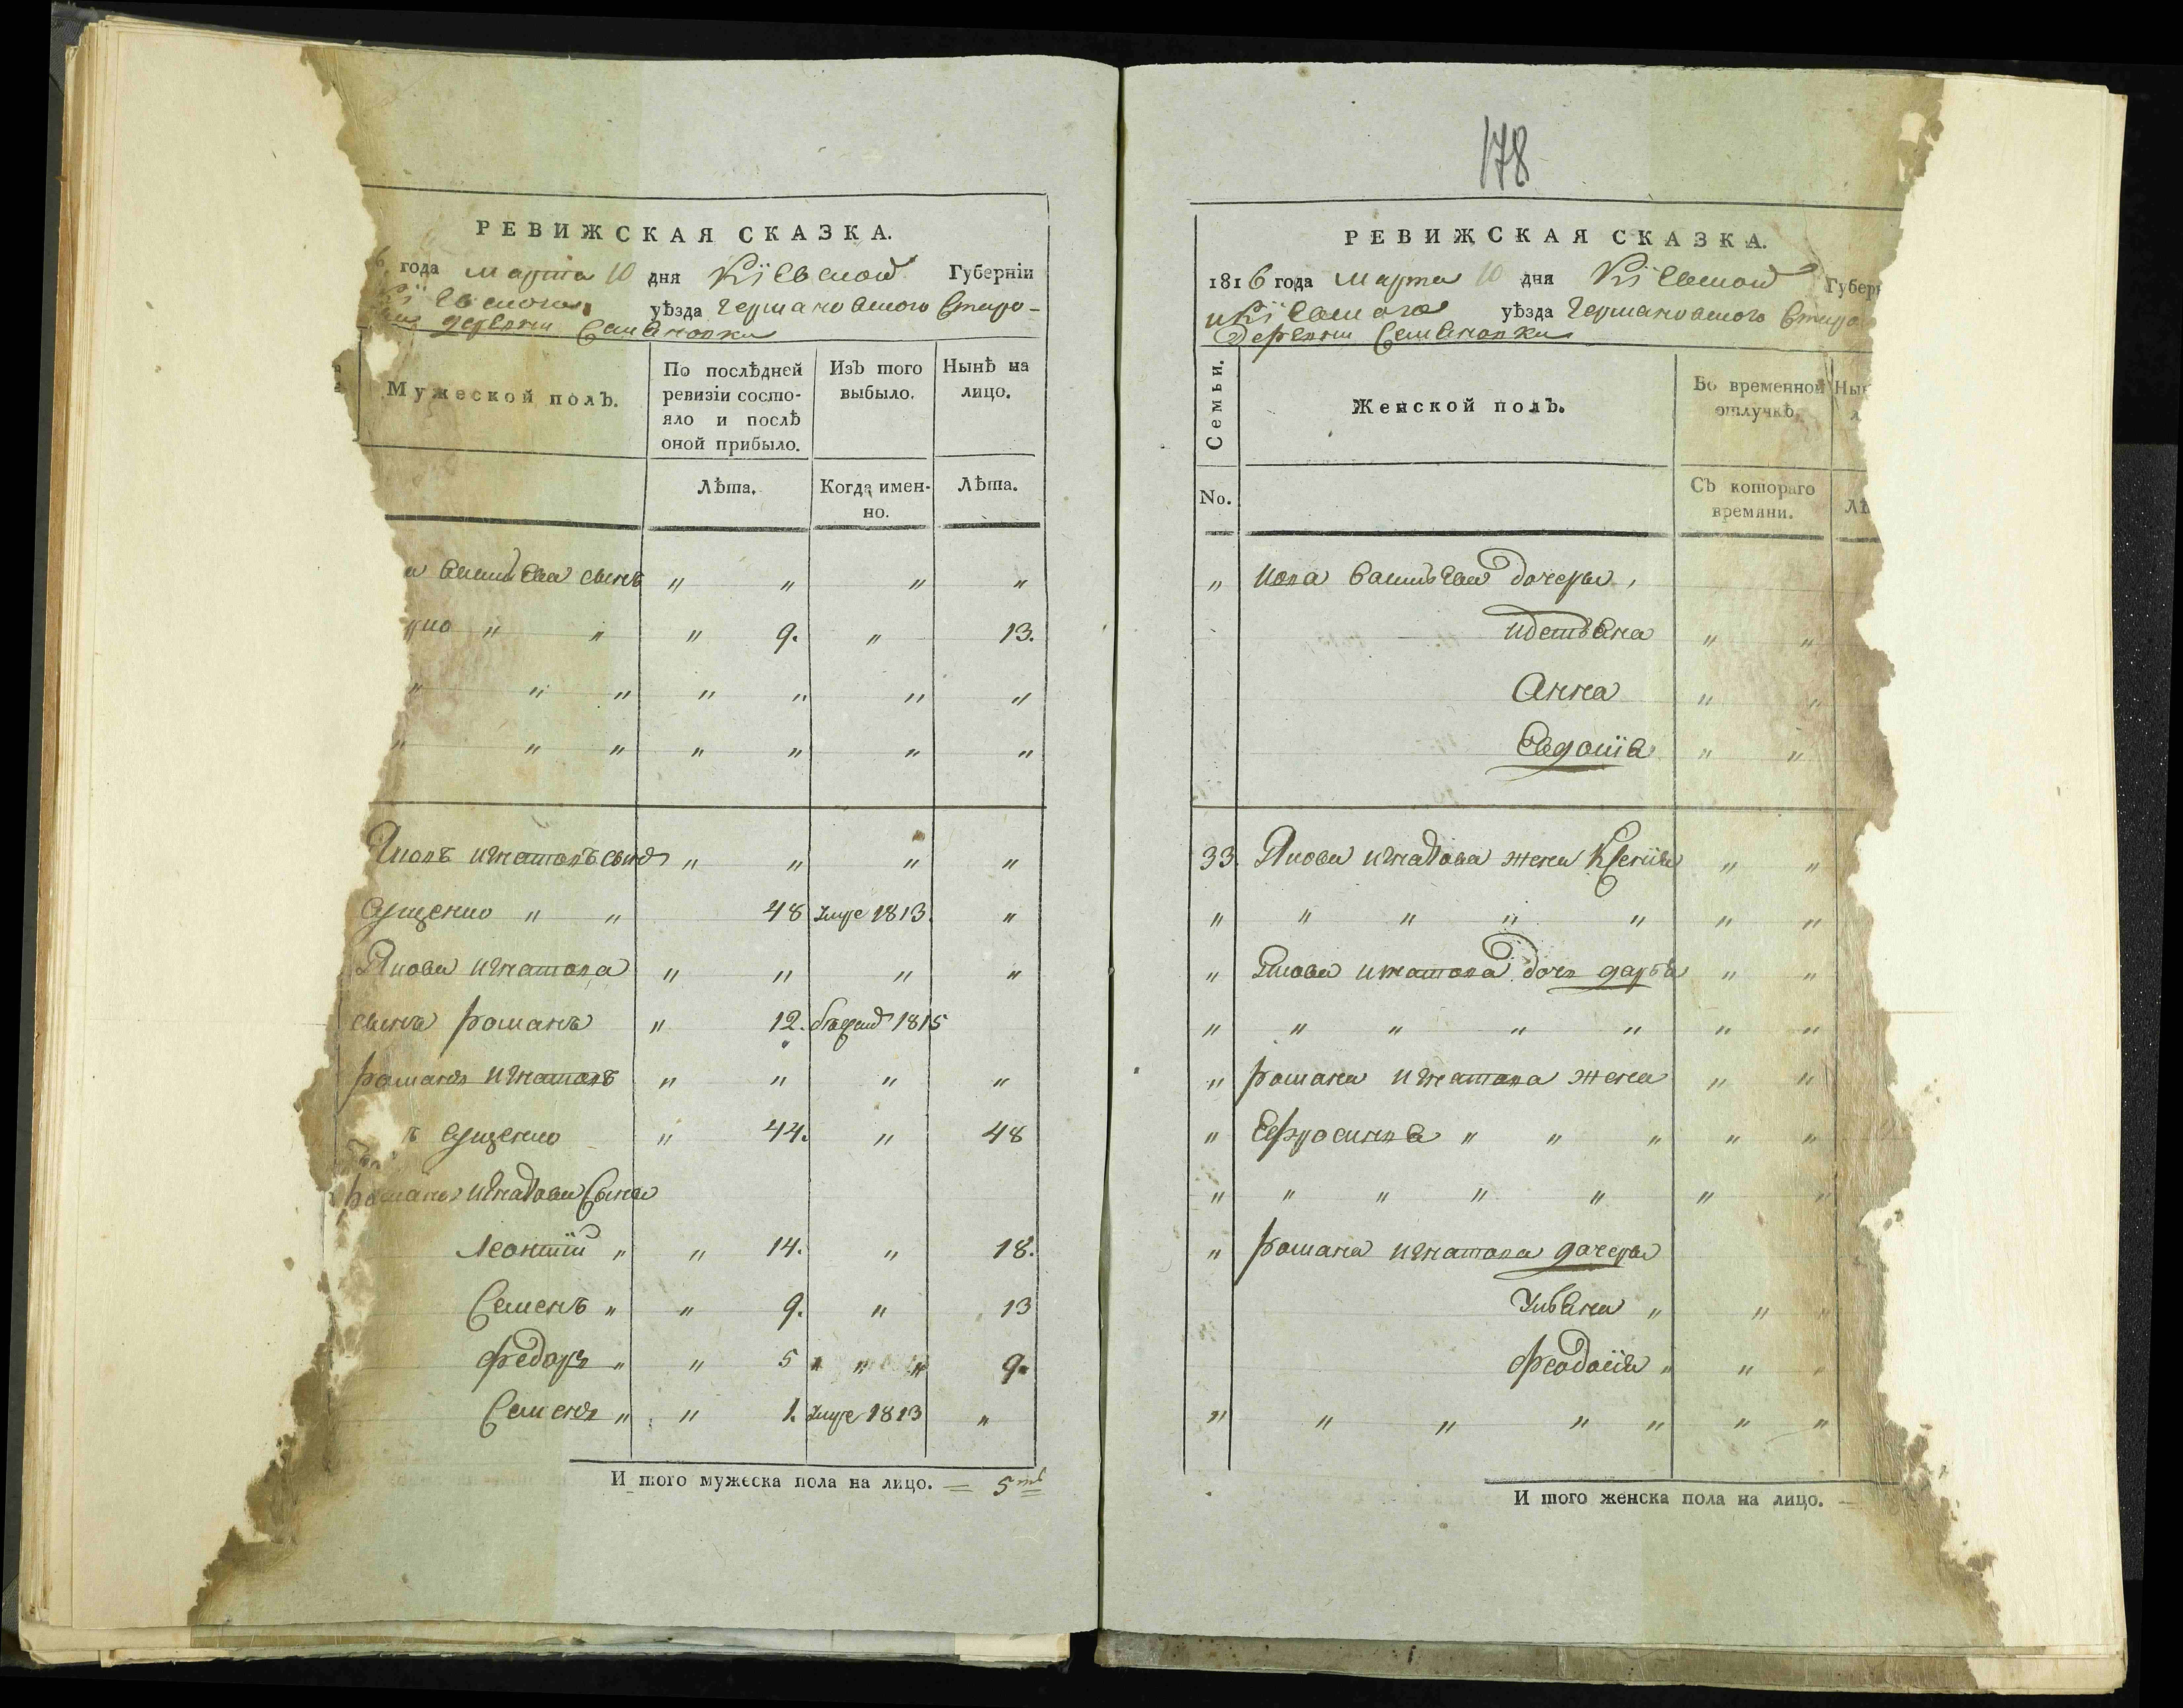 РЕВИЖСКАЯ СКАЗКА.
6 года марта 10 дня Кїевской Губерніи
Кїевскаго уѣзда Германовскаго Старо-
деревни Семеновки
Мужеской полъ.
По послѣдней ревизіи состояло и послѣ оной прибыло.
Изъ того выбыло.
Нынѣ на лицо.
Лѣта.
Когда именно.
Лѣта.
Васильева сынъ " " " "
" " " 9. " 13.
" " " " " " "
" " " " " " "
Яковъ игнатовъ сынъ " " " "
Сущенко " " 48 умре 1813. "
Якова игнатова " " " "
сынъ романъ " 12. 1815
романъ игнатовъ " " " "
Сущенко " 44. " 48
романа игнатова Сыны
Леонтїй " " 14. " 18.
Семенъ " " 9. " 13
Федоръ " " 5 " " " 9.
Семенъ " " 1. умре 1813 "
И того мужеска пола на лицо. = 5ть
178
РЕВИЖСКАЯ СКАЗКА.
1816 года марта 10 дня Кїевской Губер
Кїевскаго уѣзда Германовскаго Старо
деревни Семеновки
Семьи.
No.
Женской полъ.
Во временной отлучкѣ.
Съ котораго времяни.
Нын
Лѣ
" Васильева дочеры,
" "
Анна " "
Евдокїя " "
33. Якова игнатова жена Ксенїя " "
" " " " " " "
" Якова игнатова дочь дарья " "
" " " " " " "
" романа игнатова жена " "
" Ефросинья " " " " "
" " " " " " "
" романа игнатова дочеры
Ульяна " " "
Феодосїя " " "
" " " " " " "
И того женска пола на лицо. =